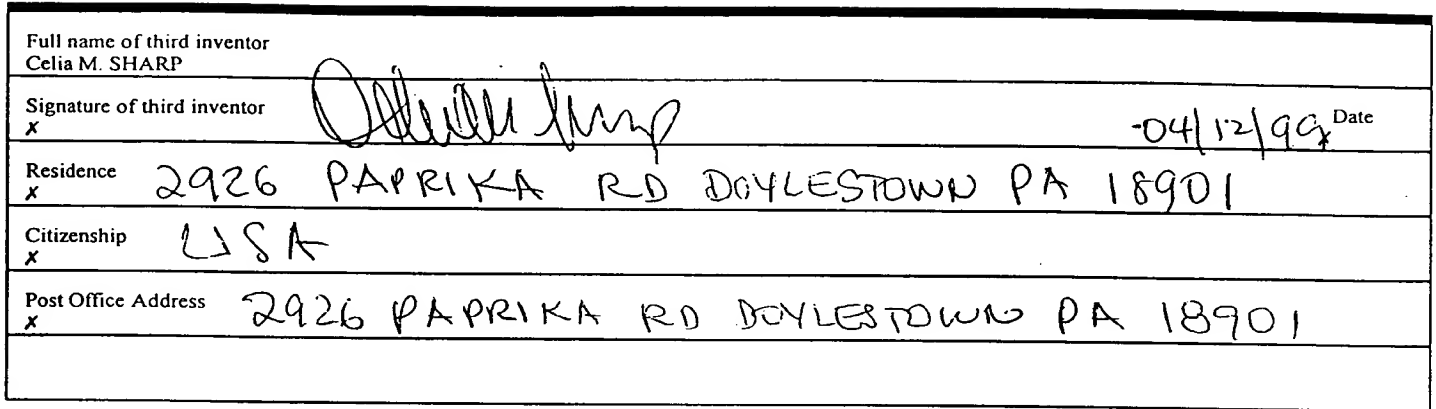 Full name of third inventor
Celia M. SHARP
Signature of third inventor
x
04/12/99 Date
Residence 2926 PAPRIKA RD DOYLESTOWN PA 18901
x
Citizenship USA
x
Post Office Address 2926 PAPRIKA RD DOYLESTOWN PA 18901
x